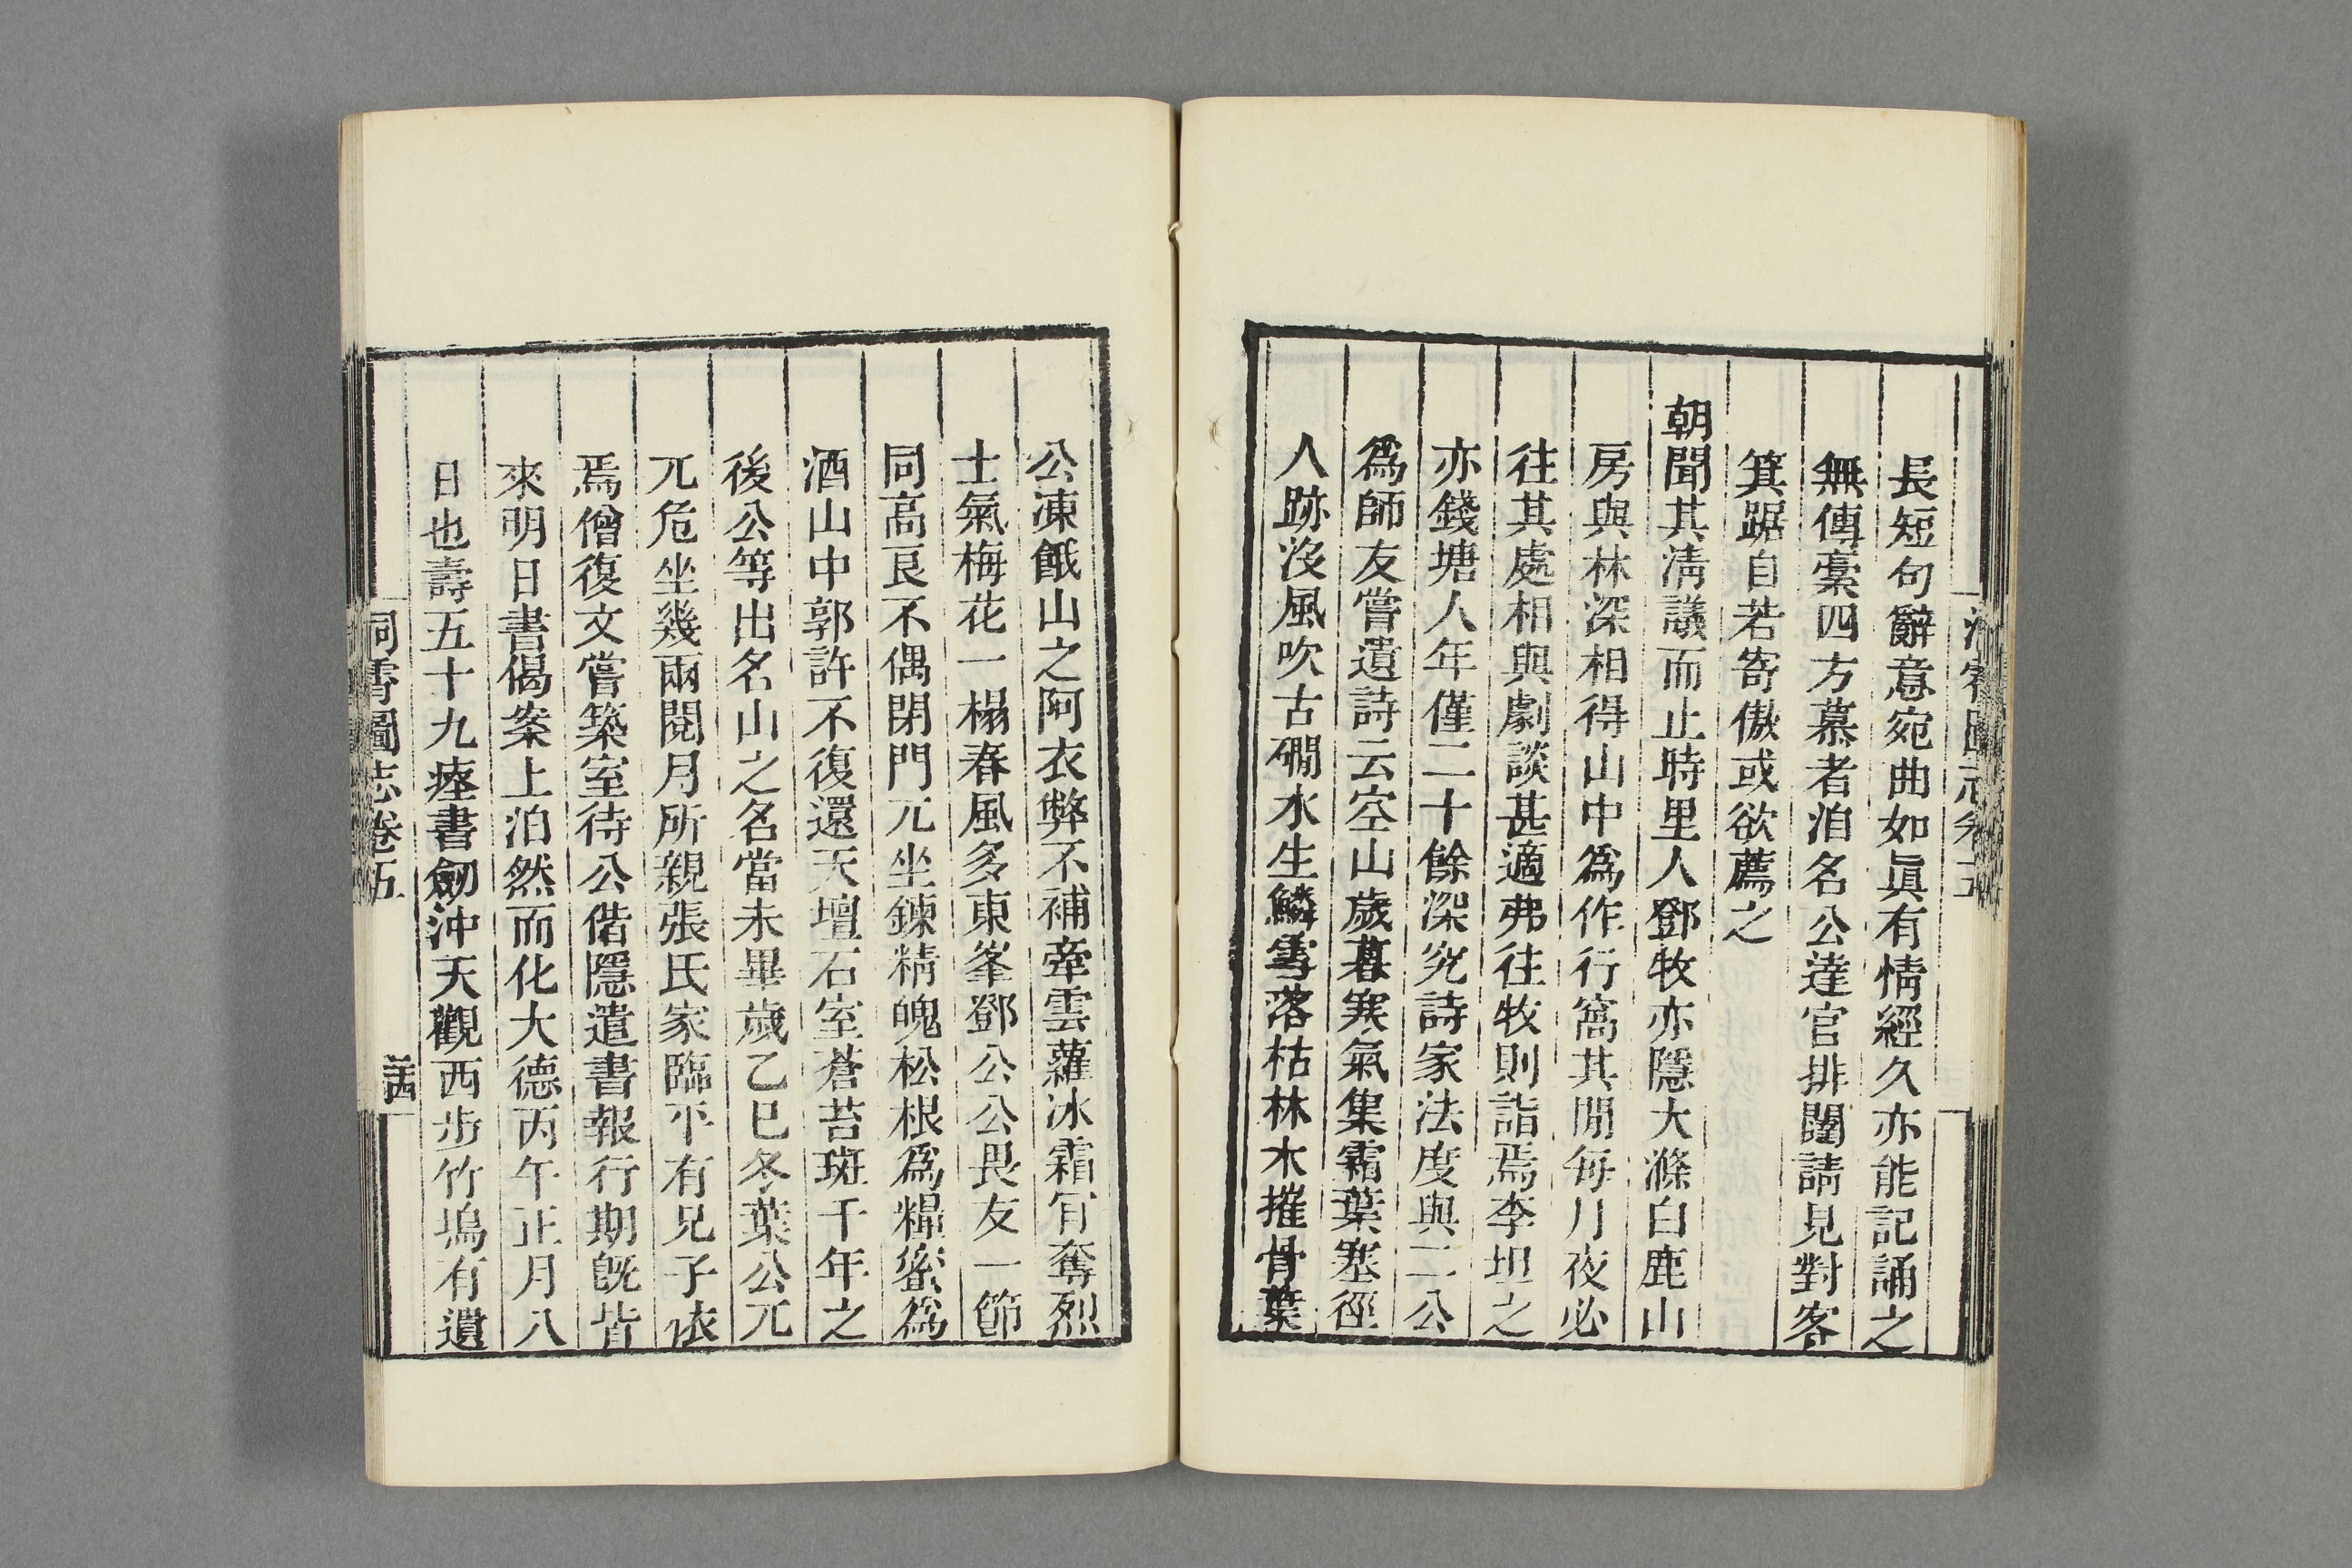 長短句辭意宛曲如眞有情經久亦能記誦之
無傳稾四方慕者洎名公達官排闥請見對客
箕踞自若寄傲或欲薦之
朝聞其淸議而止時里人鄧牧亦隱大滌白鹿山
房與林深相得山中爲作行窩其閒每月夜必
往其處相與劇談甚適弗往牧則詣焉李坦之
亦錢塘人年僅二十餘深究詩家法度與二公
爲師友嘗遺詩云空山歲暮寒氣集霜葉塞徑
人跡沒風吹古磵水生鱗雪落枯林木摧骨葉
公凍餓山之阿衣弊不補牽雲蘿冰霜肎奪烈
士氣梅花一榻春風多東峯鄧公公畏友一節
同高艮不偶閉門兀坐鍊精魄松根爲糧蜜爲
酒山中郭許不復還天壇石室蒼苔斑千年之
後公等出名山之名當未畢歲乙巳冬葉公兀
兀危坐幾兩閱月所親張氏家臨平有兄子依
焉僧復文嘗築室待公偕隱遣書報行期旣皆
來明日書偈案上泊然而化大德丙午正月八
日也壽五十九瘞書劒沖天觀西步竹塢有遺
洞霄圖志卷五